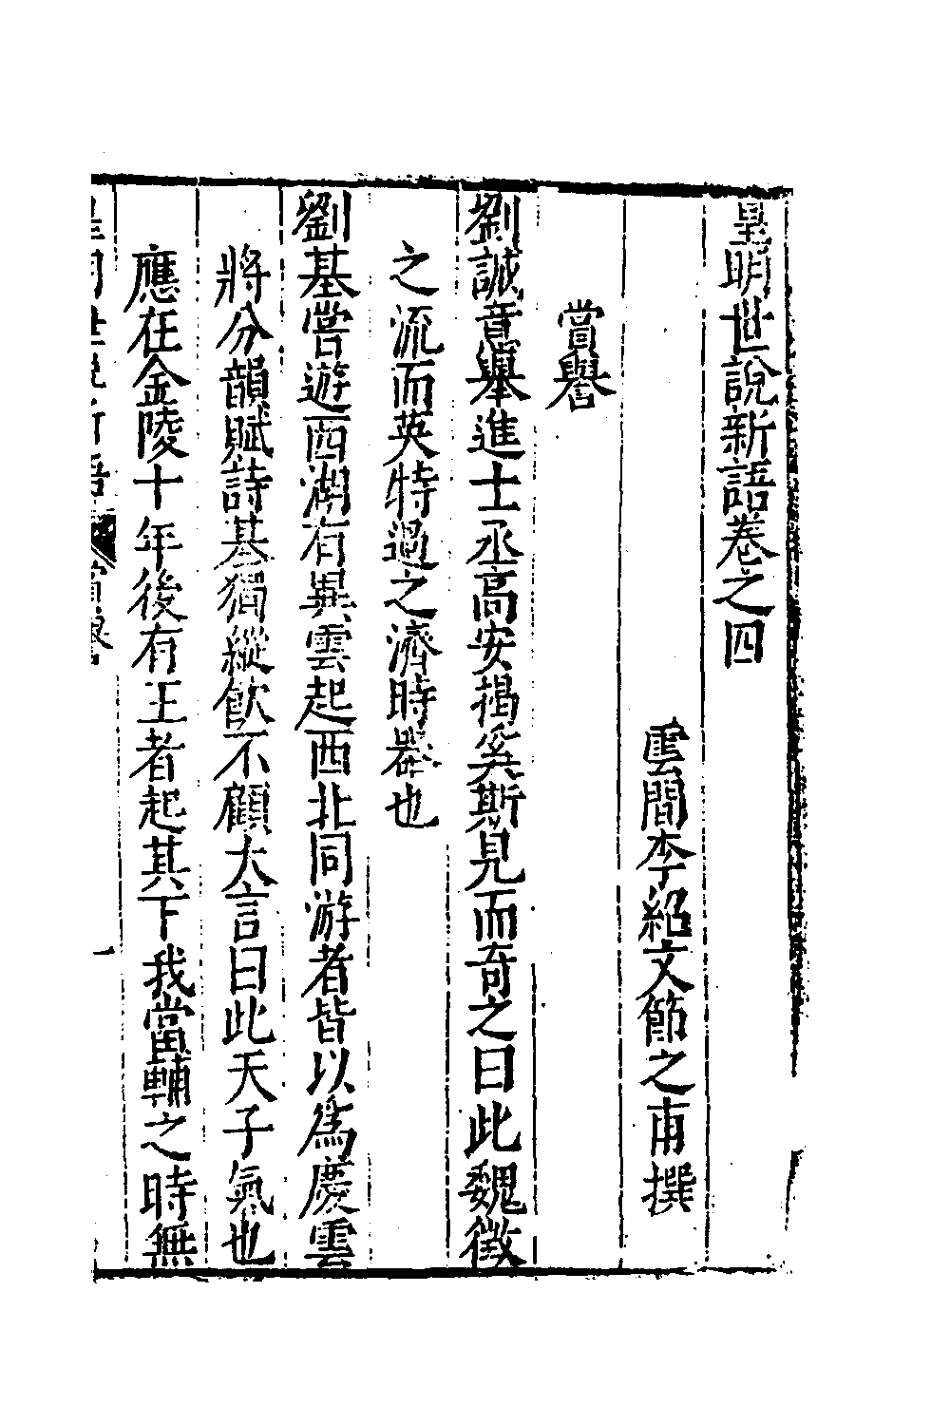 皇明世說新語卷之四
雲間李紹文節之甫撰
賞譽
劉誠意舉進士丞高安揭奚斯見而奇之曰此魏徵
之流而英特過之濟時器也
劉基嘗遊西湖有異雲起西北同游者皆以為慶雲
將分韻賦詩基獨縱飲不顧大言曰此天子氣也
應在金陵十年後有王者起其下我當輔之時無
皇明世說新語 賞譽 一